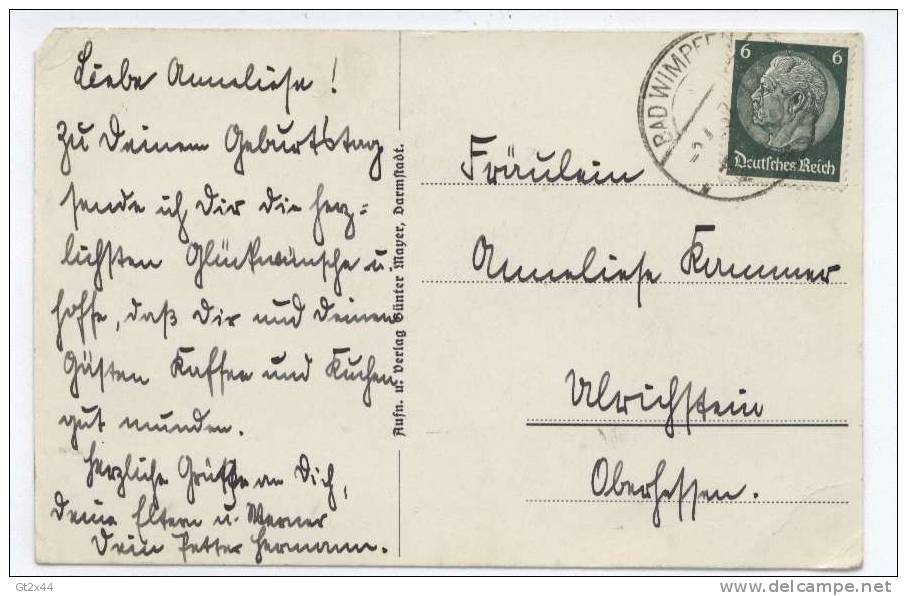 Liebe Anneliese!
Zu Deinem Geburtstag
sende ich Dir die herz=
lichsten Glückwünsche u.
hoffe, daß Dir und Deinen
Gästen Kaffee und Kuchen
gut munden.
Herzliche Grüße an Dich,
Deine Eltern u. Werner
Dein Petter Hermann.
Aufn. u. Verlag Günter Mayer, Darmstadt.
BAD WIMPFEN
6 6
Deutsches Reich
Fräulein
Anneliese Kammer
Ulrichstein
Oberhessen.
Gt2x44
delcampe.net